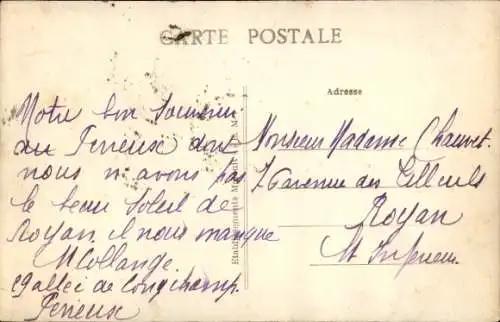 CARTE POSTALE
Adresse
Notre bon souvenir
au Perreux dont
nous n'avons pas
le beau soleil de
Royan. il nous manque
M Collange
29 allée de Longchamp.
Perreux
Monsieur Madame Chauvet.
avenue des Tilleuls
Royan
Inférieure